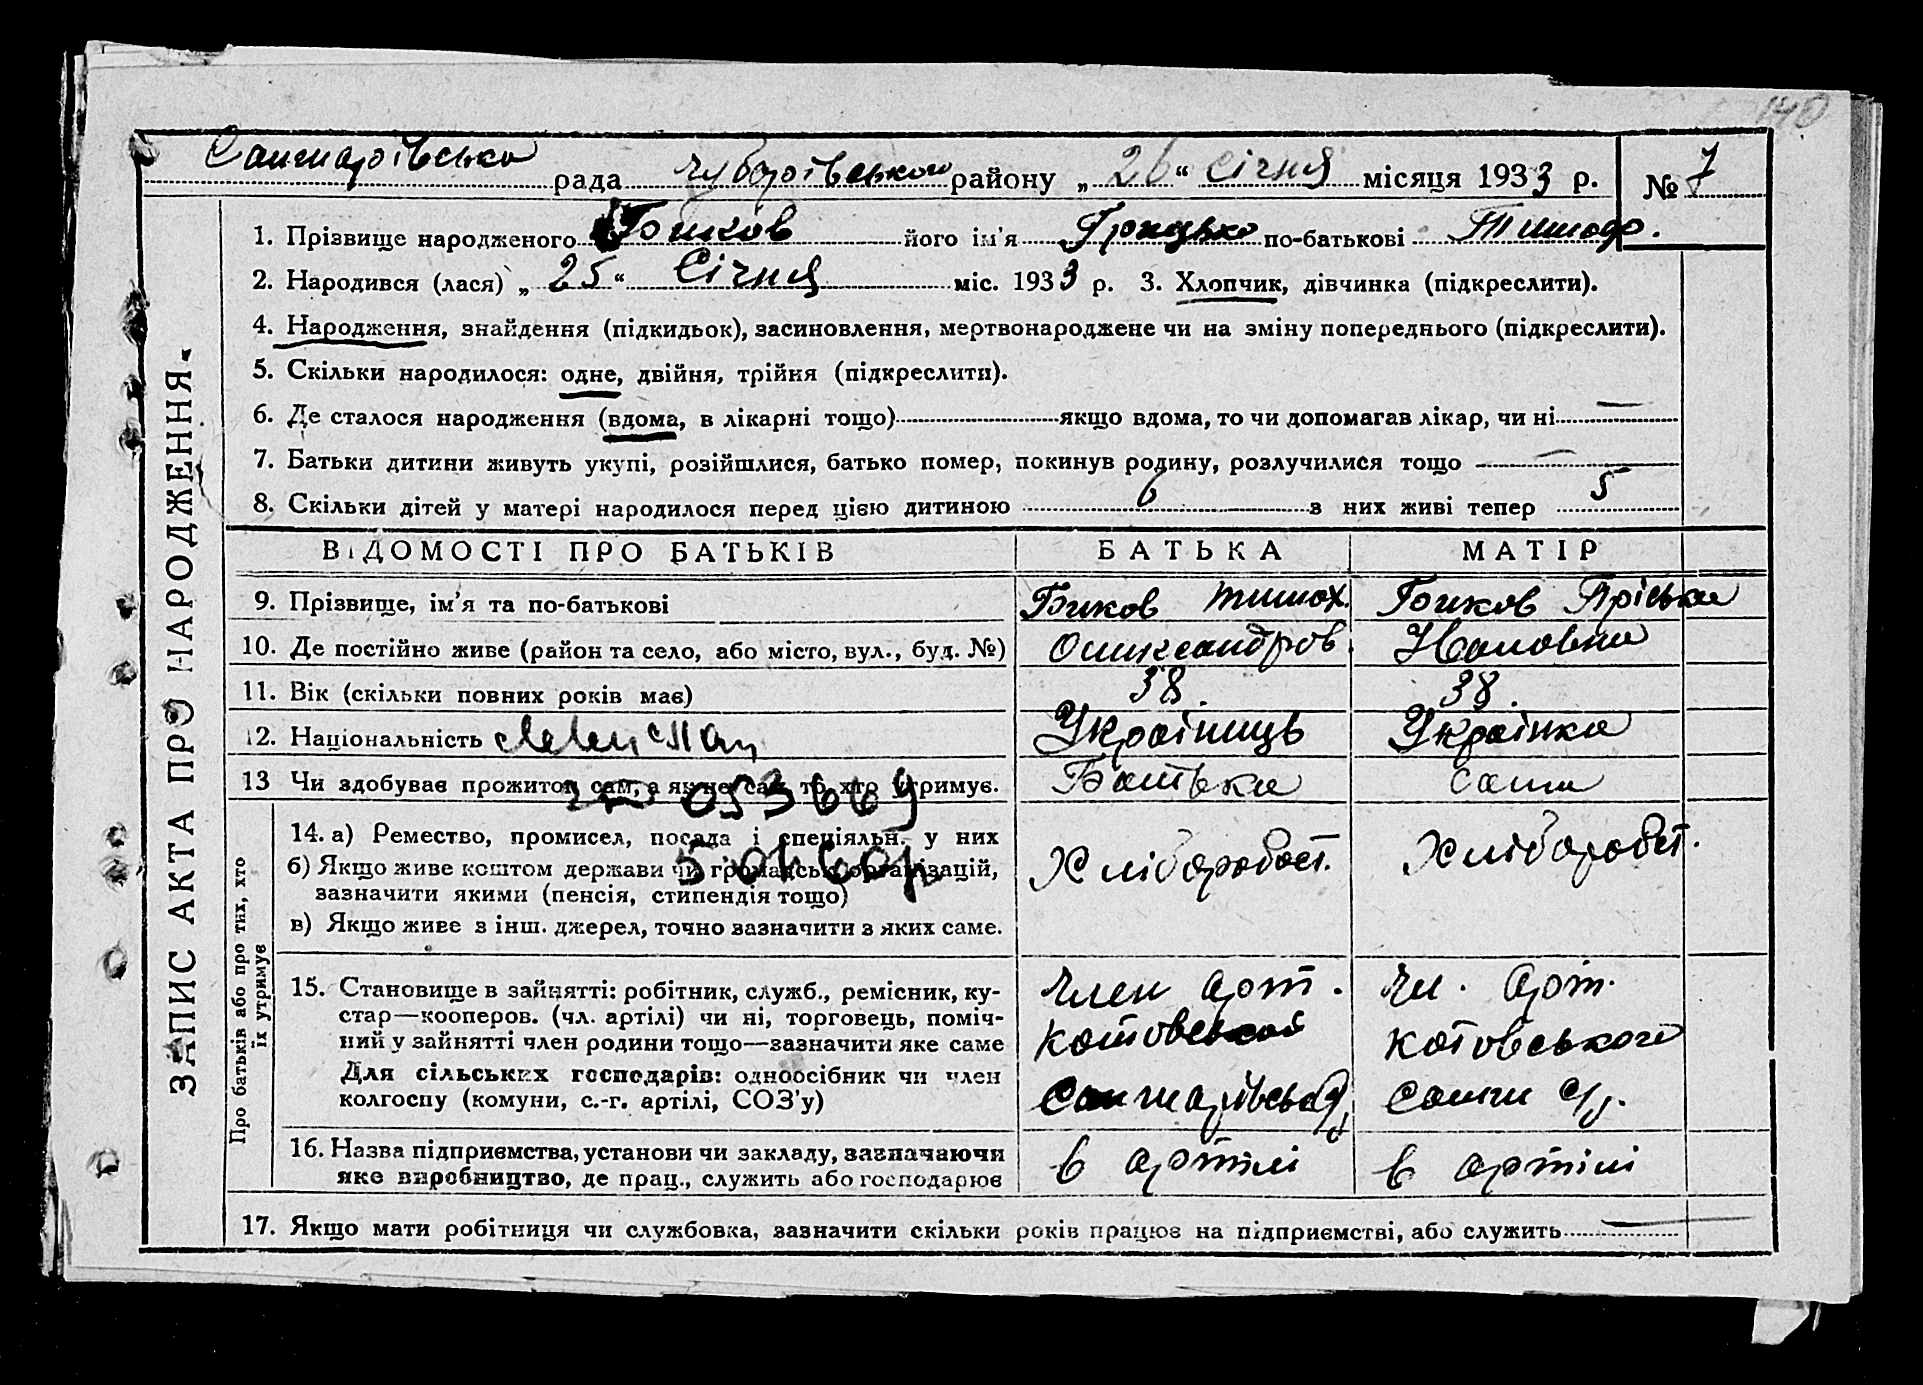 140
Санжарівська рада Чубарівського району „ 26 “ січня місяця 1933 р. № 7
ЗАПИС АКТА ПРО НАРОДЖЕННЯ.
1. Прізвище народженого Биков його ім'я Грицько по-батькові Тимофо.
2. Народився (лася) „ 25 “ Січня міс. 1933 р. 3. Хлопчик, дівчинка (підкреслити).
4. Народження, знайдення (підкидьок), засиновлення, мертвонароджене чи на зміну попереднього (підкреслити).
5. Скільки народилося: одне, двійня, трійня (підкреслити).
6. Де сталося народження (вдома, в лікарні тощо) якщо вдома, то чи допомагав лікар, чи ні —
7. Батьки дитини живуть укупі, розійшлися, батько помер, покинув родину, розлучилися тощо —
8. Скільки дітей у матері народилося перед цією дитиною 6 з них живі тепер 5
ВІДОМОСТІ ПРО БАТЬКІВ БАТЬКА МАТІР
9. Прізвище, ім'я та по-батькові Биков Тимох. Биков Пріська
10. Де постійно живе (район та село, або місто, вул., буд. №) Олександров.
11. Вік (скільки повних років має) 38. 38.
12. Національність Українць Українка
13 Чи здобуває прожиток сам, а як не сам, то хто утримує. Батько сама
053669
Про батьків або про тих, хто їх утримує
14. а) Ремество, промисел, посада і спеціяльн. у них Хліборобст. Хліборобст.
б) Якщо живе коштом держави чи громадськ. організацій,
зазначити якими (пенсія, стипендія тощо)
в) Якщо живе з інш. джерел, точно зазначити з яких саме.
15. Становище в зайнятті: робітник, служб., ремісник, ку- Член арт. Чл. арт.
стар—кооперов. (чл. артілі) чи ні, торговець, поміч- Котовської Котовського
ний у зайнятті член родини тощо—зазначити яке саме
Для сільських господарів: одноосібник чи член
колгоспу (комуни, с.-г. артілі, СОЗ'у) Санж с/р.
16. Назва підприємства, установи чи закладу, зазначаючи в артілі в артілі
яке виробництво, де прац., служить або господарює
17. Якщо мати робітниця чи службовка, зазначити скільки років працює на підприємстві, або служить —